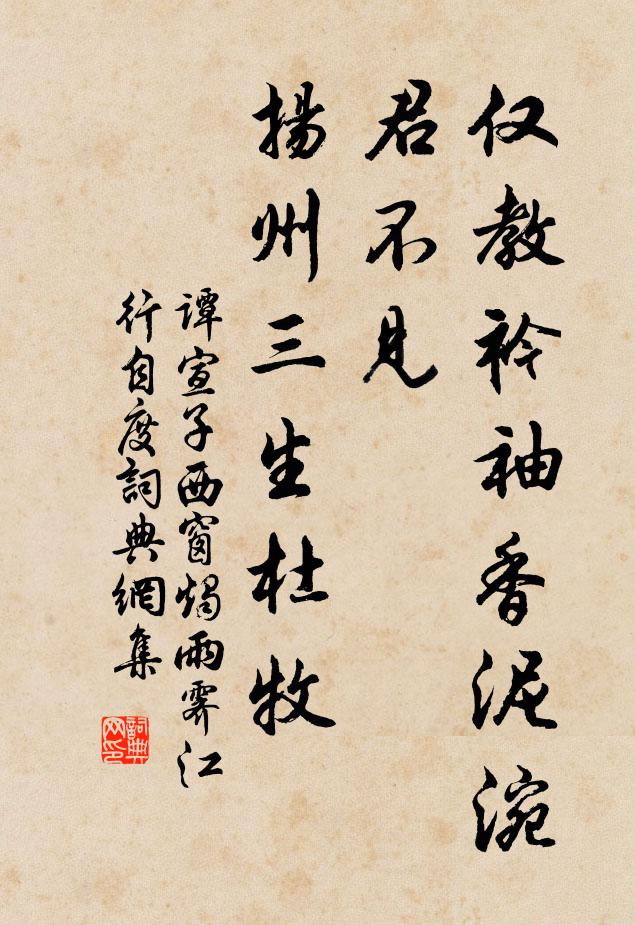 仅教衿袖香泥涴
君不见
揚州三生杜牧
譚宣子西窗燭雨霁江
行自度詞典網集
詞典网印